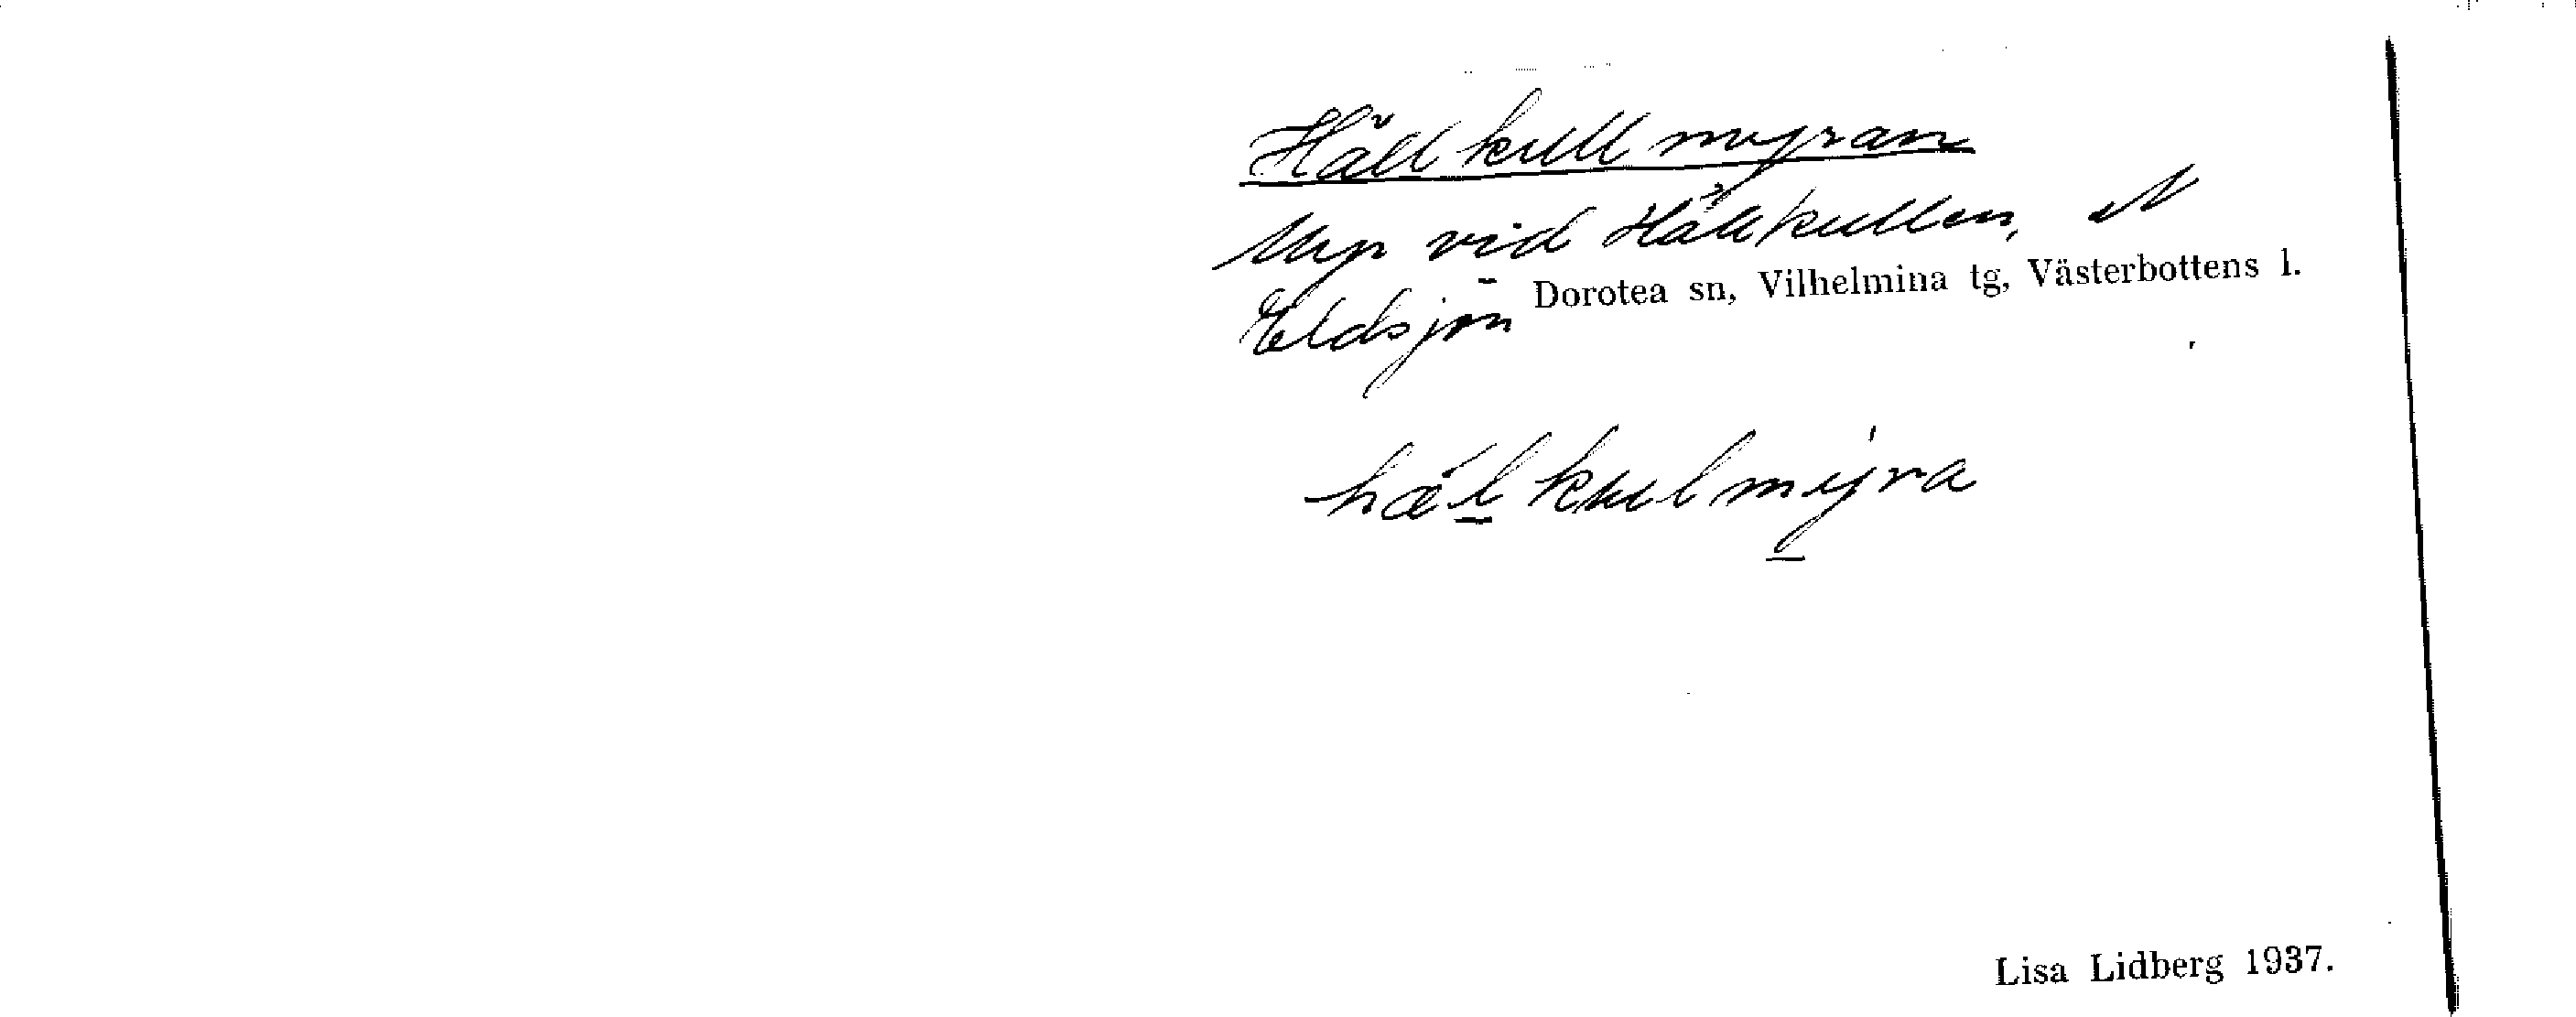 Hällkullmyran
Myr vid Hällkullen, N
Eldsjön Dorotea sn, Vilhelmina tg, Västerbottens l.
hæl̲kulmy̲ra
Lisa Lidberg 1937.